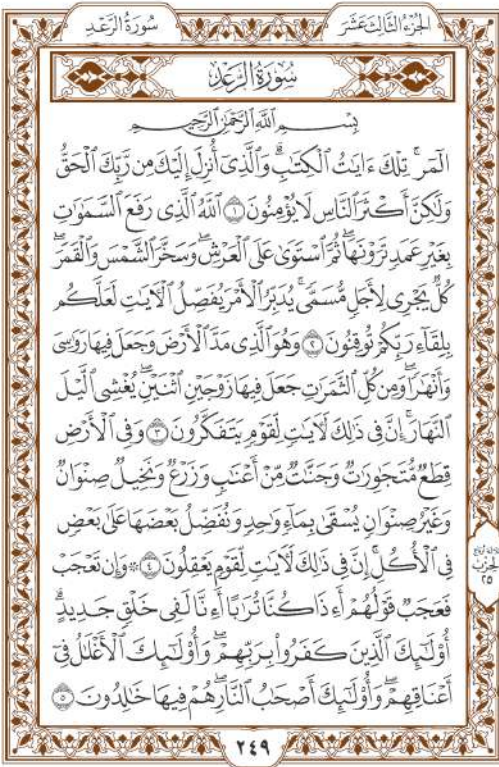 الجُزْءُ الثَّالِثَ عَشَرَ سُورَةُ الرَّعْدِ
سُورَةُ الرَّعْدِ
بِسْمِ ٱللَّهِ ٱلرَّحْمَٰنِ ٱلرَّحِيمِ
الٓمٓرۚ تِلْكَ ءَايَٰتُ ٱلْكِتَٰبِۗ وَٱلَّذِىٓ أُنزِلَ إِلَيْكَ مِن رَّبِّكَ ٱلْحَقُّ
وَلَٰكِنَّ أَكْثَرَ ٱلنَّاسِ لَا يُؤْمِنُونَ ١ ٱللَّهُ ٱلَّذِى رَفَعَ ٱلسَّمَٰوَٰتِ
بِغَيْرِ عَمَدٍ تَرَوْنَهَاۖ ثُمَّ ٱسْتَوَىٰ عَلَى ٱلْعَرْشِۖ وَسَخَّرَ ٱلشَّمْسَ وَٱلْقَمَرَۖ
كُلٌّ يَجْرِى لِأَجَلٍ مُّسَمًّىۚ يُدَبِّرُ ٱلْأَمْرَ يُفَصِّلُ ٱلْءَايَٰتِ لَعَلَّكُم
بِلِقَآءِ رَبِّكُمْ تُوقِنُونَ ٢ وَهُوَ ٱلَّذِى مَدَّ ٱلْأَرْضَ وَجَعَلَ فِيهَا رَوَٰسِىَ
وَأَنْهَٰرًاۖ وَمِن كُلِّ ٱلثَّمَرَٰتِ جَعَلَ فِيهَا زَوْجَيْنِ ٱثْنَيْنِۖ يُغْشِى ٱلَّيْلَ
ٱلنَّهَارَۚ إِنَّ فِى ذَٰلِكَ لَءَايَٰتٍ لِّقَوْمٍ يَتَفَكَّرُونَ ٣ وَفِى ٱلْأَرْضِ
قِطَعٌ مُّتَجَٰوِرَٰتٌ وَجَنَّٰتٌ مِّنْ أَعْنَٰبٍ وَزَرْعٌ وَنَخِيلٌ صِنْوَانٌ
وَغَيْرُ صِنْوَانٍ يُسْقَىٰ بِمَآءٍ وَٰحِدٍ وَنُفَضِّلُ بَعْضَهَا عَلَىٰ بَعْضٍ
فِى ٱلْأُكُلِۚ إِنَّ فِى ذَٰلِكَ لَءَايَٰتٍ لِّقَوْمٍ يَعْقِلُونَ ٤ ۞ وَإِن تَعْجَبْ
فَعَجَبٌ قَوْلُهُمْ أَءِذَا كُنَّا تُرَٰبًا أَءِنَّا لَفِى خَلْقٍ جَدِيدٍۗ
أُو۟لَٰٓئِكَ ٱلَّذِينَ كَفَرُوا۟ بِرَبِّهِمْۖ وَأُو۟لَٰٓئِكَ ٱلْأَغْلَٰلُ فِىٓ
أَعْنَاقِهِمْۖ وَأُو۟لَٰٓئِكَ أَصْحَٰبُ ٱلنَّارِۖ هُمْ فِيهَا خَٰلِدُونَ ٥
الحِزْب
٢٥
٢٤٩